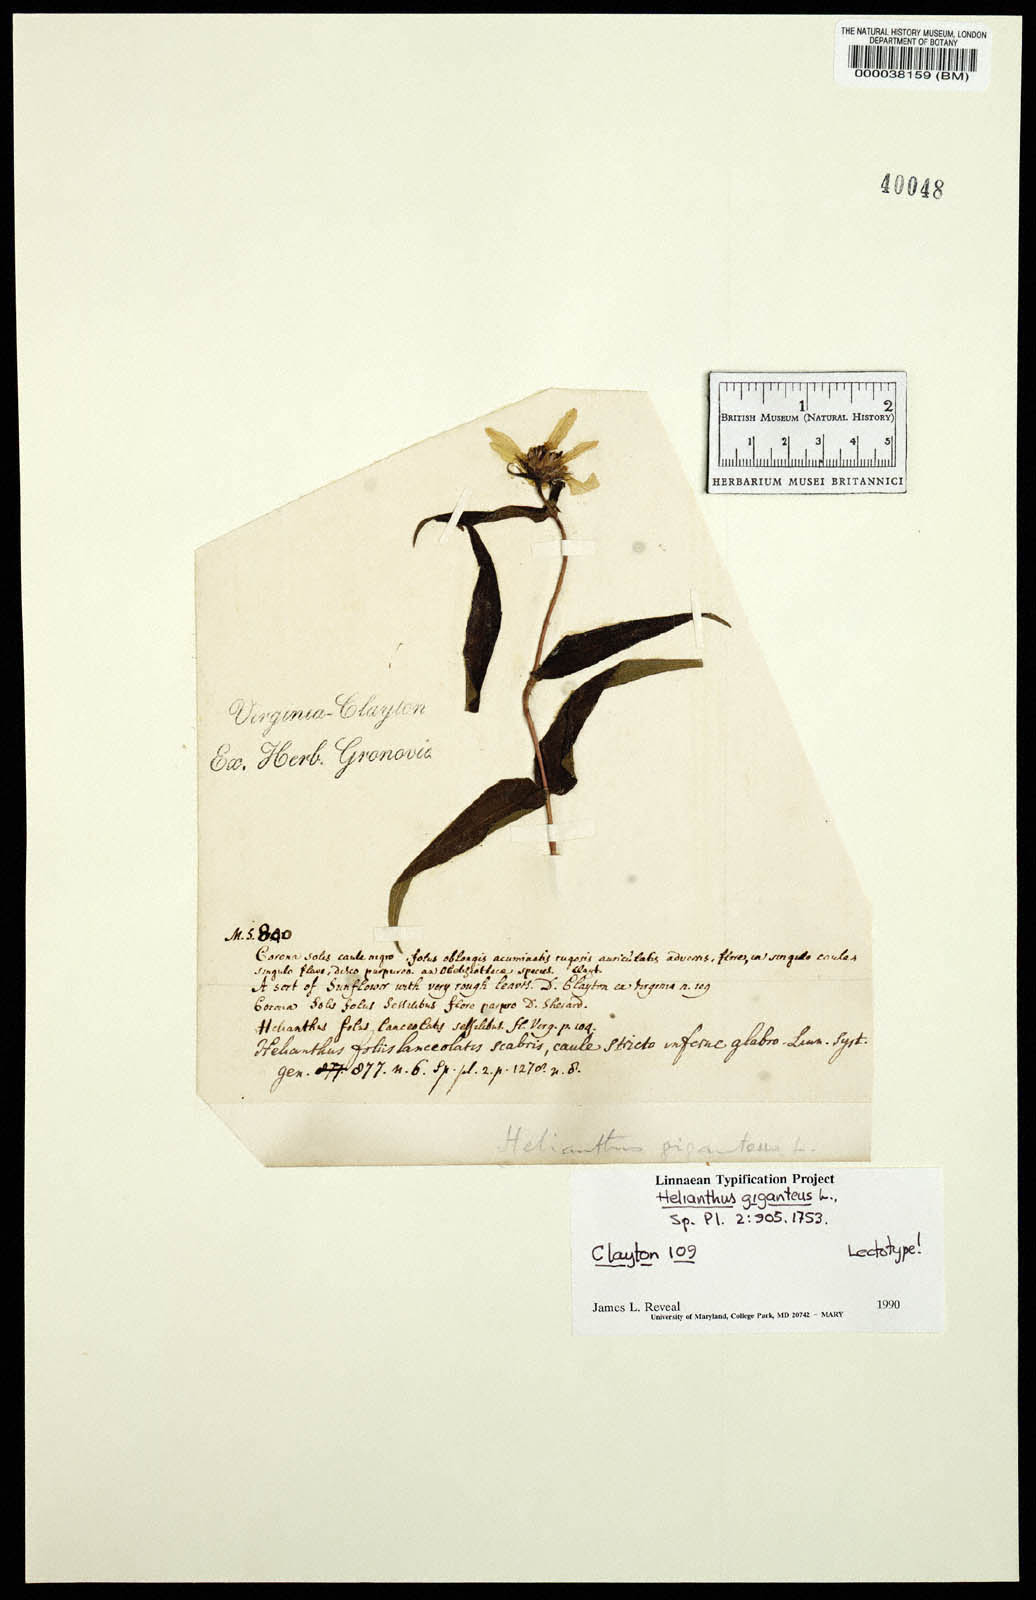 THE NATURAL HISTORY MUSEUM, LONDON
DEPARTMENT OF BOTANY
000038159 (BM)
40048
1 2
BRITISH MUSEUM (NATURAL HISTORY)
1 2 3 4 5
HERBARIUM MUSEI BRITANNICI
Virginia-Clayton
Ex. Herb. Gronovii
M.S. 
Corona solis caule nigro, foliis oblongis acuminatis rugosis auriculatis adversis, flores, in singulo caule
singulo flavo, disco purpureo. an species. Clayt.
A sort of Sunflower with very rough leaves. D. Clayton ex Virginia n. 109
Corona Solis foliis Sessilibus flore parvo D. Sherard.
Helianthus foliis lanceolatis sessilibus. Fl. Virg. p. 104.
Helianthus foliis lanceolatis scabris, caule stricto inferne glabro. Linn. Syst.
gen. 877 877. n. 6. Sp. pl. 2. p. 1278. n. 8.
Helianthus giganteus L.
Linnaean Typification Project
Helianthus giganteus L.,
Sp. Pl. 2:905. 1753.
Clayton 109 Lectotype!
James L. Reveal 1990
University of Maryland, College Park, MD 20742 - MARY